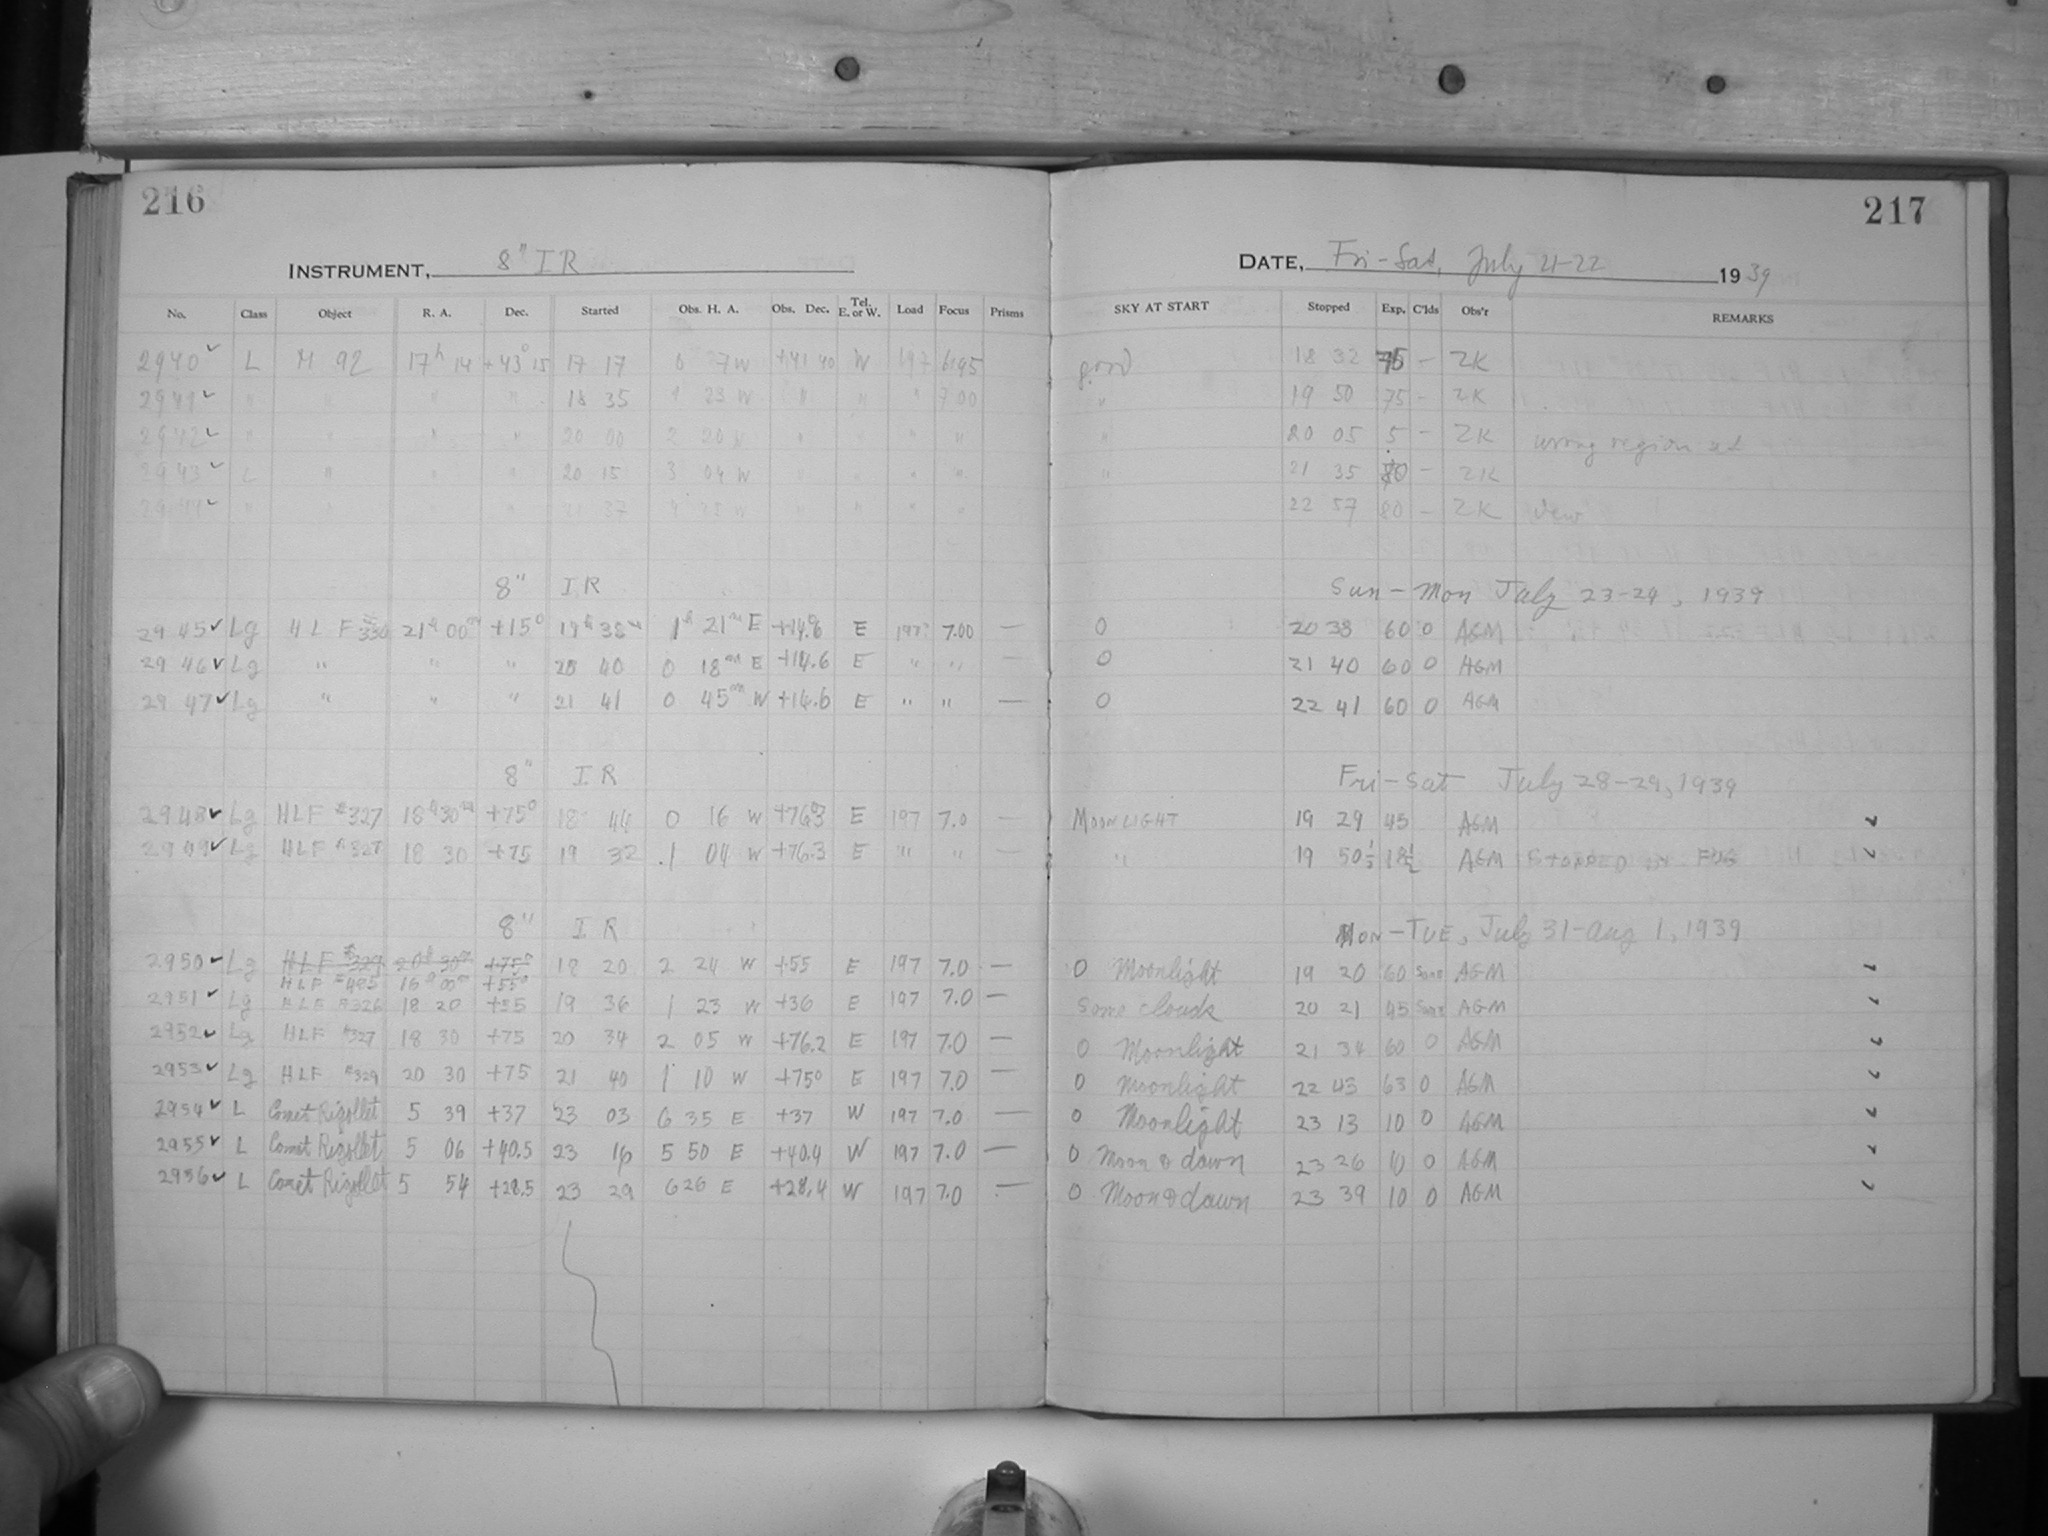 216
INSTRUMENT, 8" I R
No. Class Object R. A. Dec. Started Obs. H. A. Obs. Dec. Tel. E. or W. Load Focus Prisms
2940 ✓ L M 92 17h 14 +43° 15 17 17 0 7 W +41 40 W 197 6.95
2941 ✓ " " " " 18 35 23 W " " " 7.00
2942 ✓ " " " " 20 00 2 20 W " " " "
2943 ✓ L " " " 20 15 3 04 W " " " "
2944 ✓ " " " " 21 37 4 25 W " " " "
8" I R
2945 ✓ Lg H L F 330 21h 00m +15° 19h 38m 1h 21m E +14.6 E 197? 7.00 —
2946 ✓ Lg " " " 20 40 0 18m E +14.6 E " " —
2947 ✓ Lg " " " 21 41 0 45m W +14.6 E " " —
8" I R
2948 ✓ Lg HLF #327 18h 30m +75° 18 44 0 16 W +76.3 E 197 7.0 —
2949 ✓ Lg HLF #327 18 30 +75 19 32 1 04 W +76.3 E " " —
8" I R
2950 ✓ Lg HLF #329 20h 30m +75° 18 20 2 24 W +55 E 197 7.0 —
HLF #495 16h 00m +55°
2951 ✓ Lg HLF #326 18 20 +35 19 36 1 23 W +36 E 197 7.0 —
2952 ✓ Lg HLF #327 18 30 +75 20 34 2 05 W +76.2 E 197 7.0 —
2953 ✓ Lg HLF #329 20 30 +75 21 40 1 10 W +75° E 197 7.0 —
2954 ✓ L Comet Rigollet 5 39 +37 23 03 6 35 E +37 W 197 7.0 —
2955 ✓ L Comet Rigollet 5 06 +40.5 23 16 5 50 E +40.4 W 197 7.0 —
2956 ✓ L Comet Rigollet 5 54 +28.5 23 29 6 26 E +28.4 W 197 7.0 —
217
DATE, Fri-Sat, July 21-22 1939
SKY AT START Stopped Exp. C'lds Obs'r REMARKS
good 18 32 75 — ZK
" 19 50 75 — ZK
" 20 05 5 — ZK wrong region set
" 21 35 80 — ZK
22 57 80 — ZK dew
Sun - Mon July 23-24, 1939
0 20 38 60 0 AGM
0 21 40 60 0 AGM
0 22 41 60 0 AGM
Fri - Sat July 28-29, 1939
MOONLIGHT 19 29 45 AGM ✓
" 19 50½ 18½ AGM STOPPED BY FOG ✓
MON - TUE, July 31 - Aug 1, 1939
0 Moonlight 19 20 60 Some AGM ✓
Some clouds 20 21 45 Some AGM ✓
0 Moonlight 21 34 60 0 AGM ✓
0 Moonlight 22 43 63 0 AGM ✓
0 Moonlight 23 13 10 0 AGM ✓
0 Moon & dawn 23 26 10 0 AGM ✓
0 Moon & dawn 23 39 10 0 AGM ✓